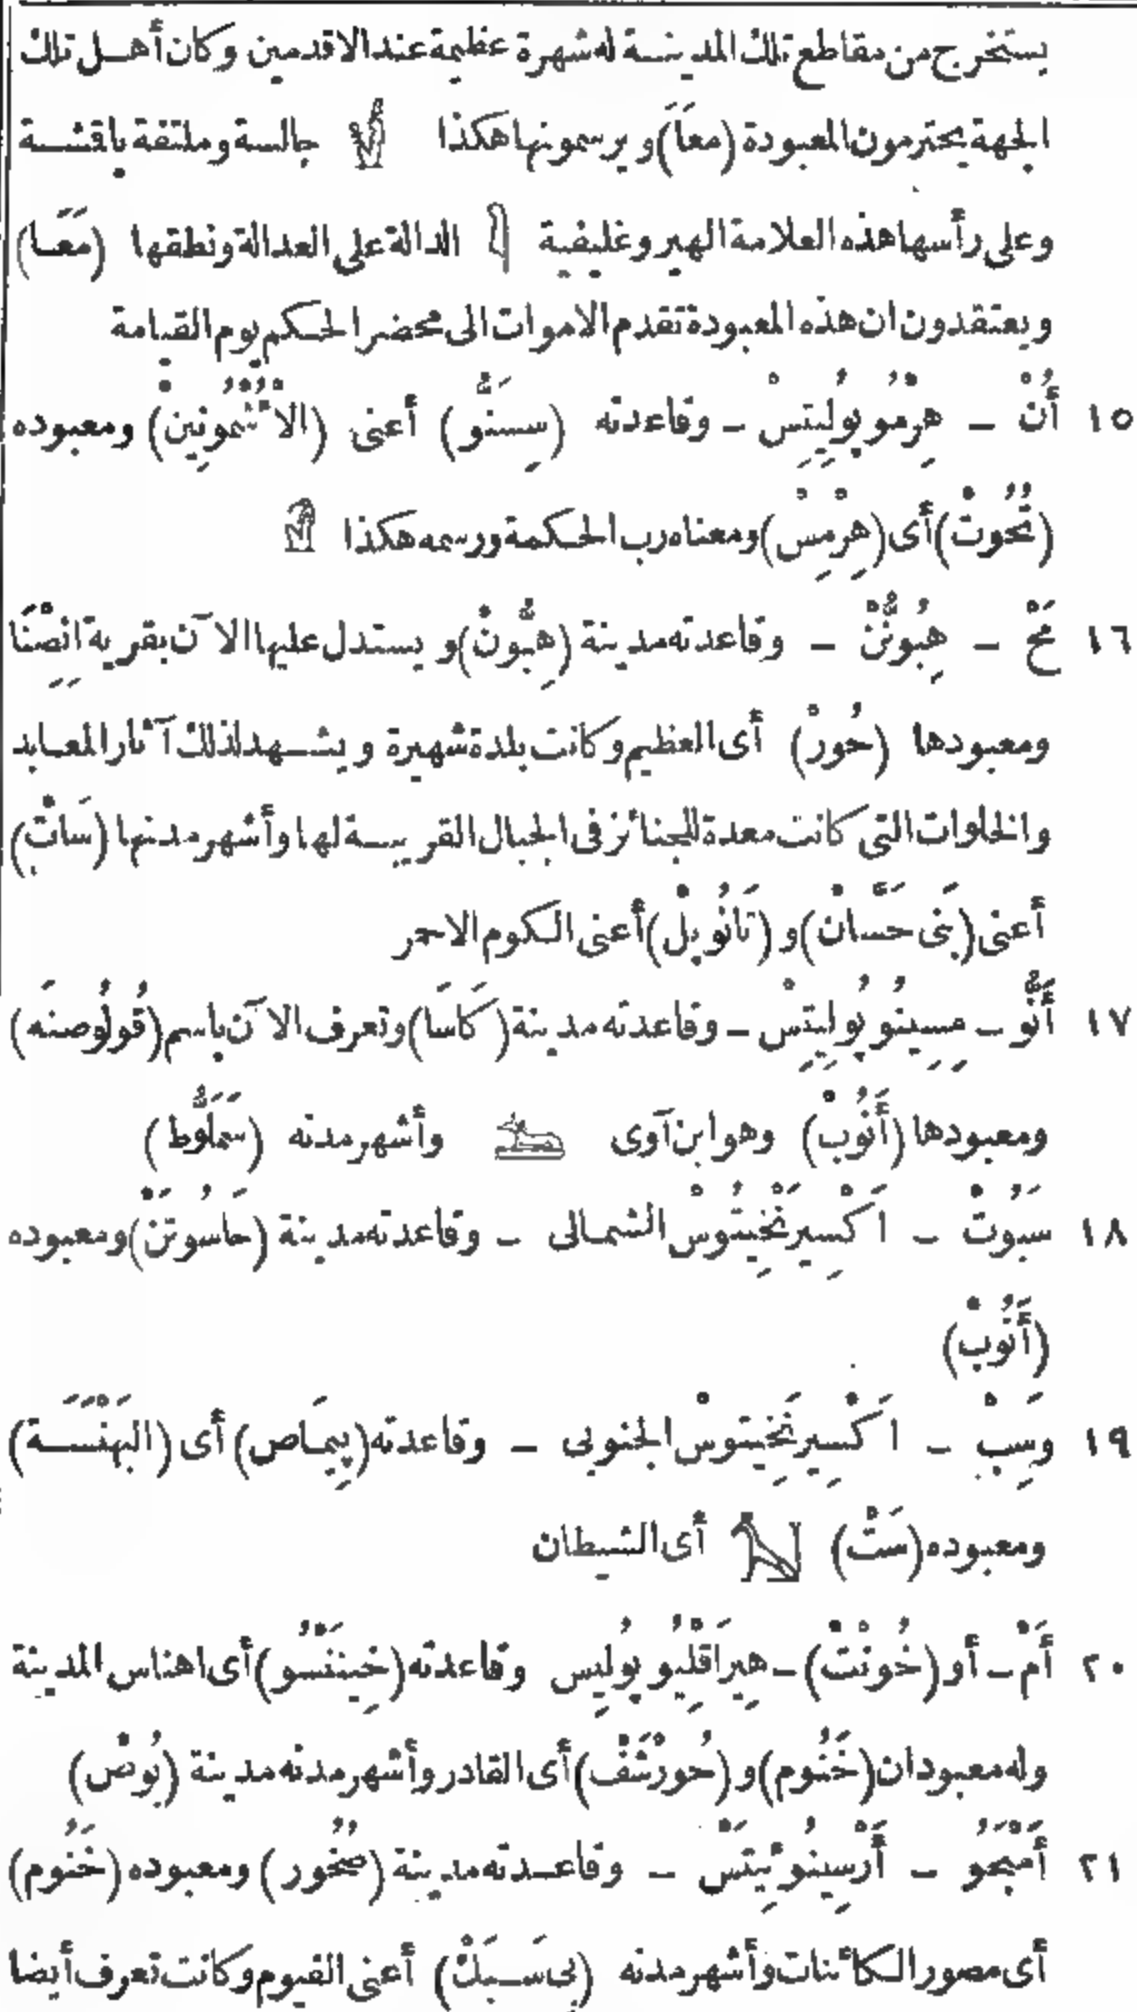 يستخرج من مقاطع تلك المدينة له شهرة عظيمة عند الاقدمين وكان أهل تلك
الجهة يحترمون المعبودة (معَاَ) ويرسمونها هكذا جالسة وملتفة باقشة
وعلى رأسها هذه العلامة الهيروغليفية الدالة على العدالة ونطقها (مَعَا)
ويعتقدون ان هذه المعبودة تقدم الاموات الى محضر الحكم يوم القيامة
١٥ أُنْ ـ هِرْمُو پُولِيتِسْ ـ وقاعدته (سِسَنُّو) أعنى (الاُشْمُونِينْ) ومعبوده
(تُحُوتْ) أى (هِرْمِسْ) ومعناه رب الحكمة ورسمه هكذا
١٦ مَحْ ـ هِبُونُّنْ ـ وقاعدته مدينة (هِبُّونْ) ويستدل عليها الآن بقرية اِنصِْنَا
ومعبودها (حُورْ) أى العظيم وكانت بلدة شهيرة ويشهد لذلك آثار المعابد
والخلوات التى كانت معدة للجنائز فى الجبال القريبة لها وأشهر مدنها (سَاتْ)
أعنى (بَنى حَسَّانْ) و (تَانُوبْلْ) أعنى الكوم الاحمر
١٧ أَنُّو ـ مِسِينُو پُولِيتِسْ ـ وقاعدته مدينة (كَاسَا) وتعرف الآن باسم (قُولُوصنَه)
ومعبودها (أَنُوبْ) وهو ابن آوى وأشهر مدنه (سَمَلُّوط)
١٨ سَبُوتْ ـ اَكْسِيرَنْخِيتُوسْ الشمالى ـ وقاعدته مدينة (حَاسُوتَنْ) ومعبوده
(أَنُوبْ)
١٩ وَسِبْ ـ اَكْسِيرَنْخِيتوسْ الجنوبى ـ وقاعدته (پِيمَاص) أى (البَهَنْسَة)
ومعبوده (سَتْ) أى الشيطان
٢٠ أَمْ ـ أو (خُونْتْ) ـ هِيرَاقْلِيُو پُولِيس وقاعدته (خِينَنْسُو) أى اهناس المدينة
وله معبودان (خَنُوم) و (حُورْشَفْ) أى القادر وأشهر مدنه مدينة (بُوصْ)
٢١ أَمْبَحُو ـ أَرْسِينُوئِيتَسْ ـ وقاعدته مدينة (صُحُور) ومعبوده (خَنُوم)
أى مصور الكائنات وأشهر مدنه (پى سَبَكْ) أعنى الفيوم وكانت تعرف أيضا